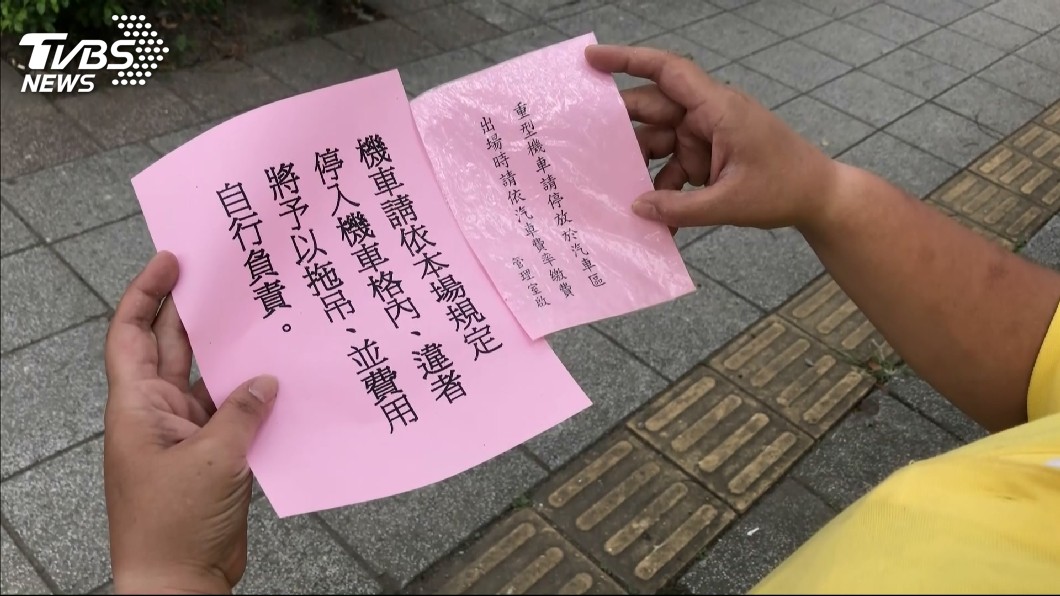 TVBS
NEWS
機車請依本場規定
停入機車格內、違者
將予以拖吊、並費用
自行負責。
重型機車請停放於汽車區
出場時請依汽車費率繳費
管理室啟